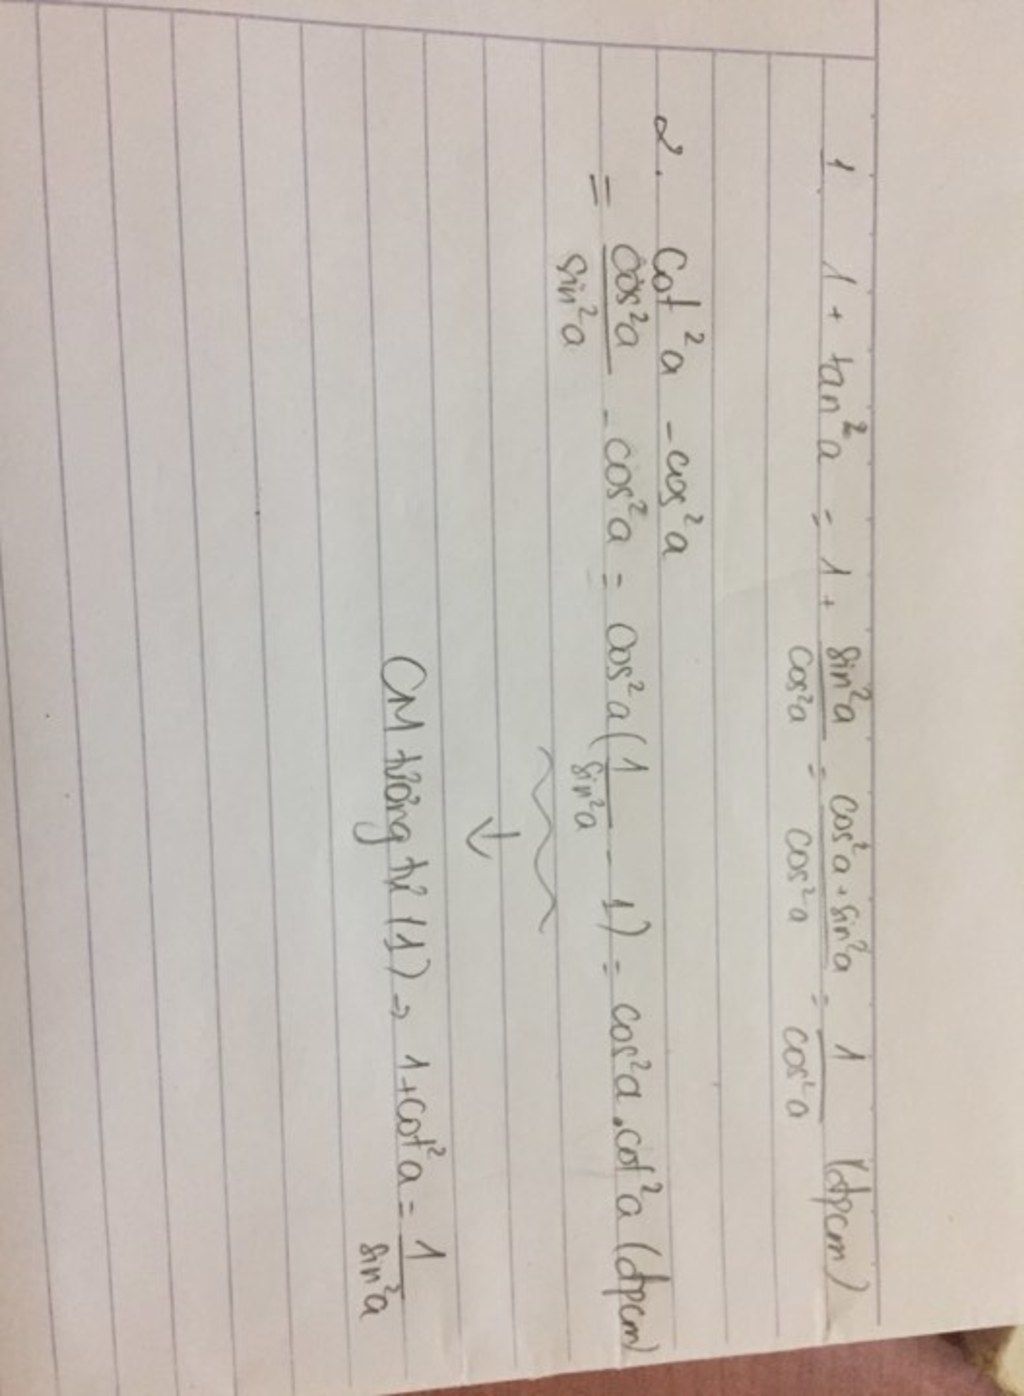 1 1 + tan²a = 1 + sin²a/cos²a = cos²a + sin²a/cos²a = 1/cos²a (đpcm)
2. Cot²a - cos²a
= cos²a/sin²a - cos²a = cos²a(1/sin²a - 1) = cos²a.cot²a (đpcm)
CM tương tự (1) → 1+cot²a = 1/sin²a